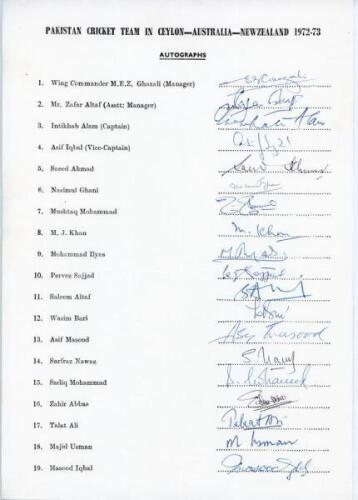 PAKISTAN CRICKET TEAM IN CEYLON—AUSTRALIA—NEWZEALAND 1972-73
AUTOGRAPHS
1. Wing Commander M.E.Z. Ghazali (Manager)
2. Mr. Zafar Altaf (Asstt: Manager)
3. Intikhab Alam (Captain) Intikhab Alam
4. Asif Iqbal (Vice-Captain)
5. Saeed Ahmad Saeed Ahmad
6. Nasimul Ghani
7. Mushtaq Mohammad
8. M. J. Khan M. Khan
9. Mohammad Ilyas
10. Pervez Sajjad
11. Saleem Altaf
12. Wasim Bari
13. Asif Masood Asif Masood
14. Sarfraz Nawaz
15. Sadiq Mohammad
16. Zahir Abbas
17. Talat Ali Talat Ali
18. Majid Usman M Usman
19. Masood Iqbal Masood Iqbal